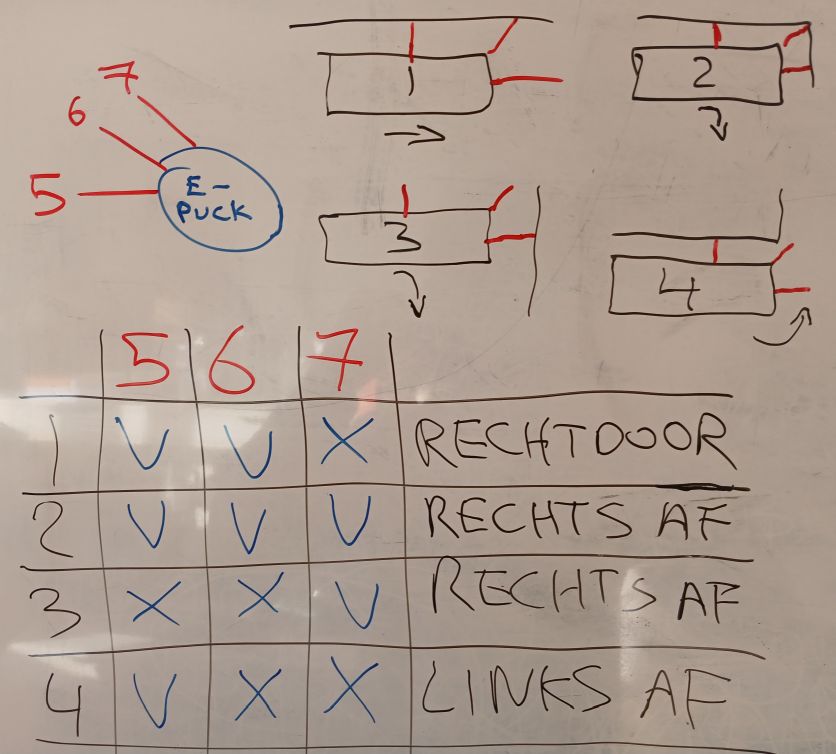 7
6
5
E-
PUCK
1
2
3
4
5 6 7
1 V V X RECHTDOOR
2 V V V RECHTS AF
3 X X V RECHTS AF
4 V X X LINKS AF